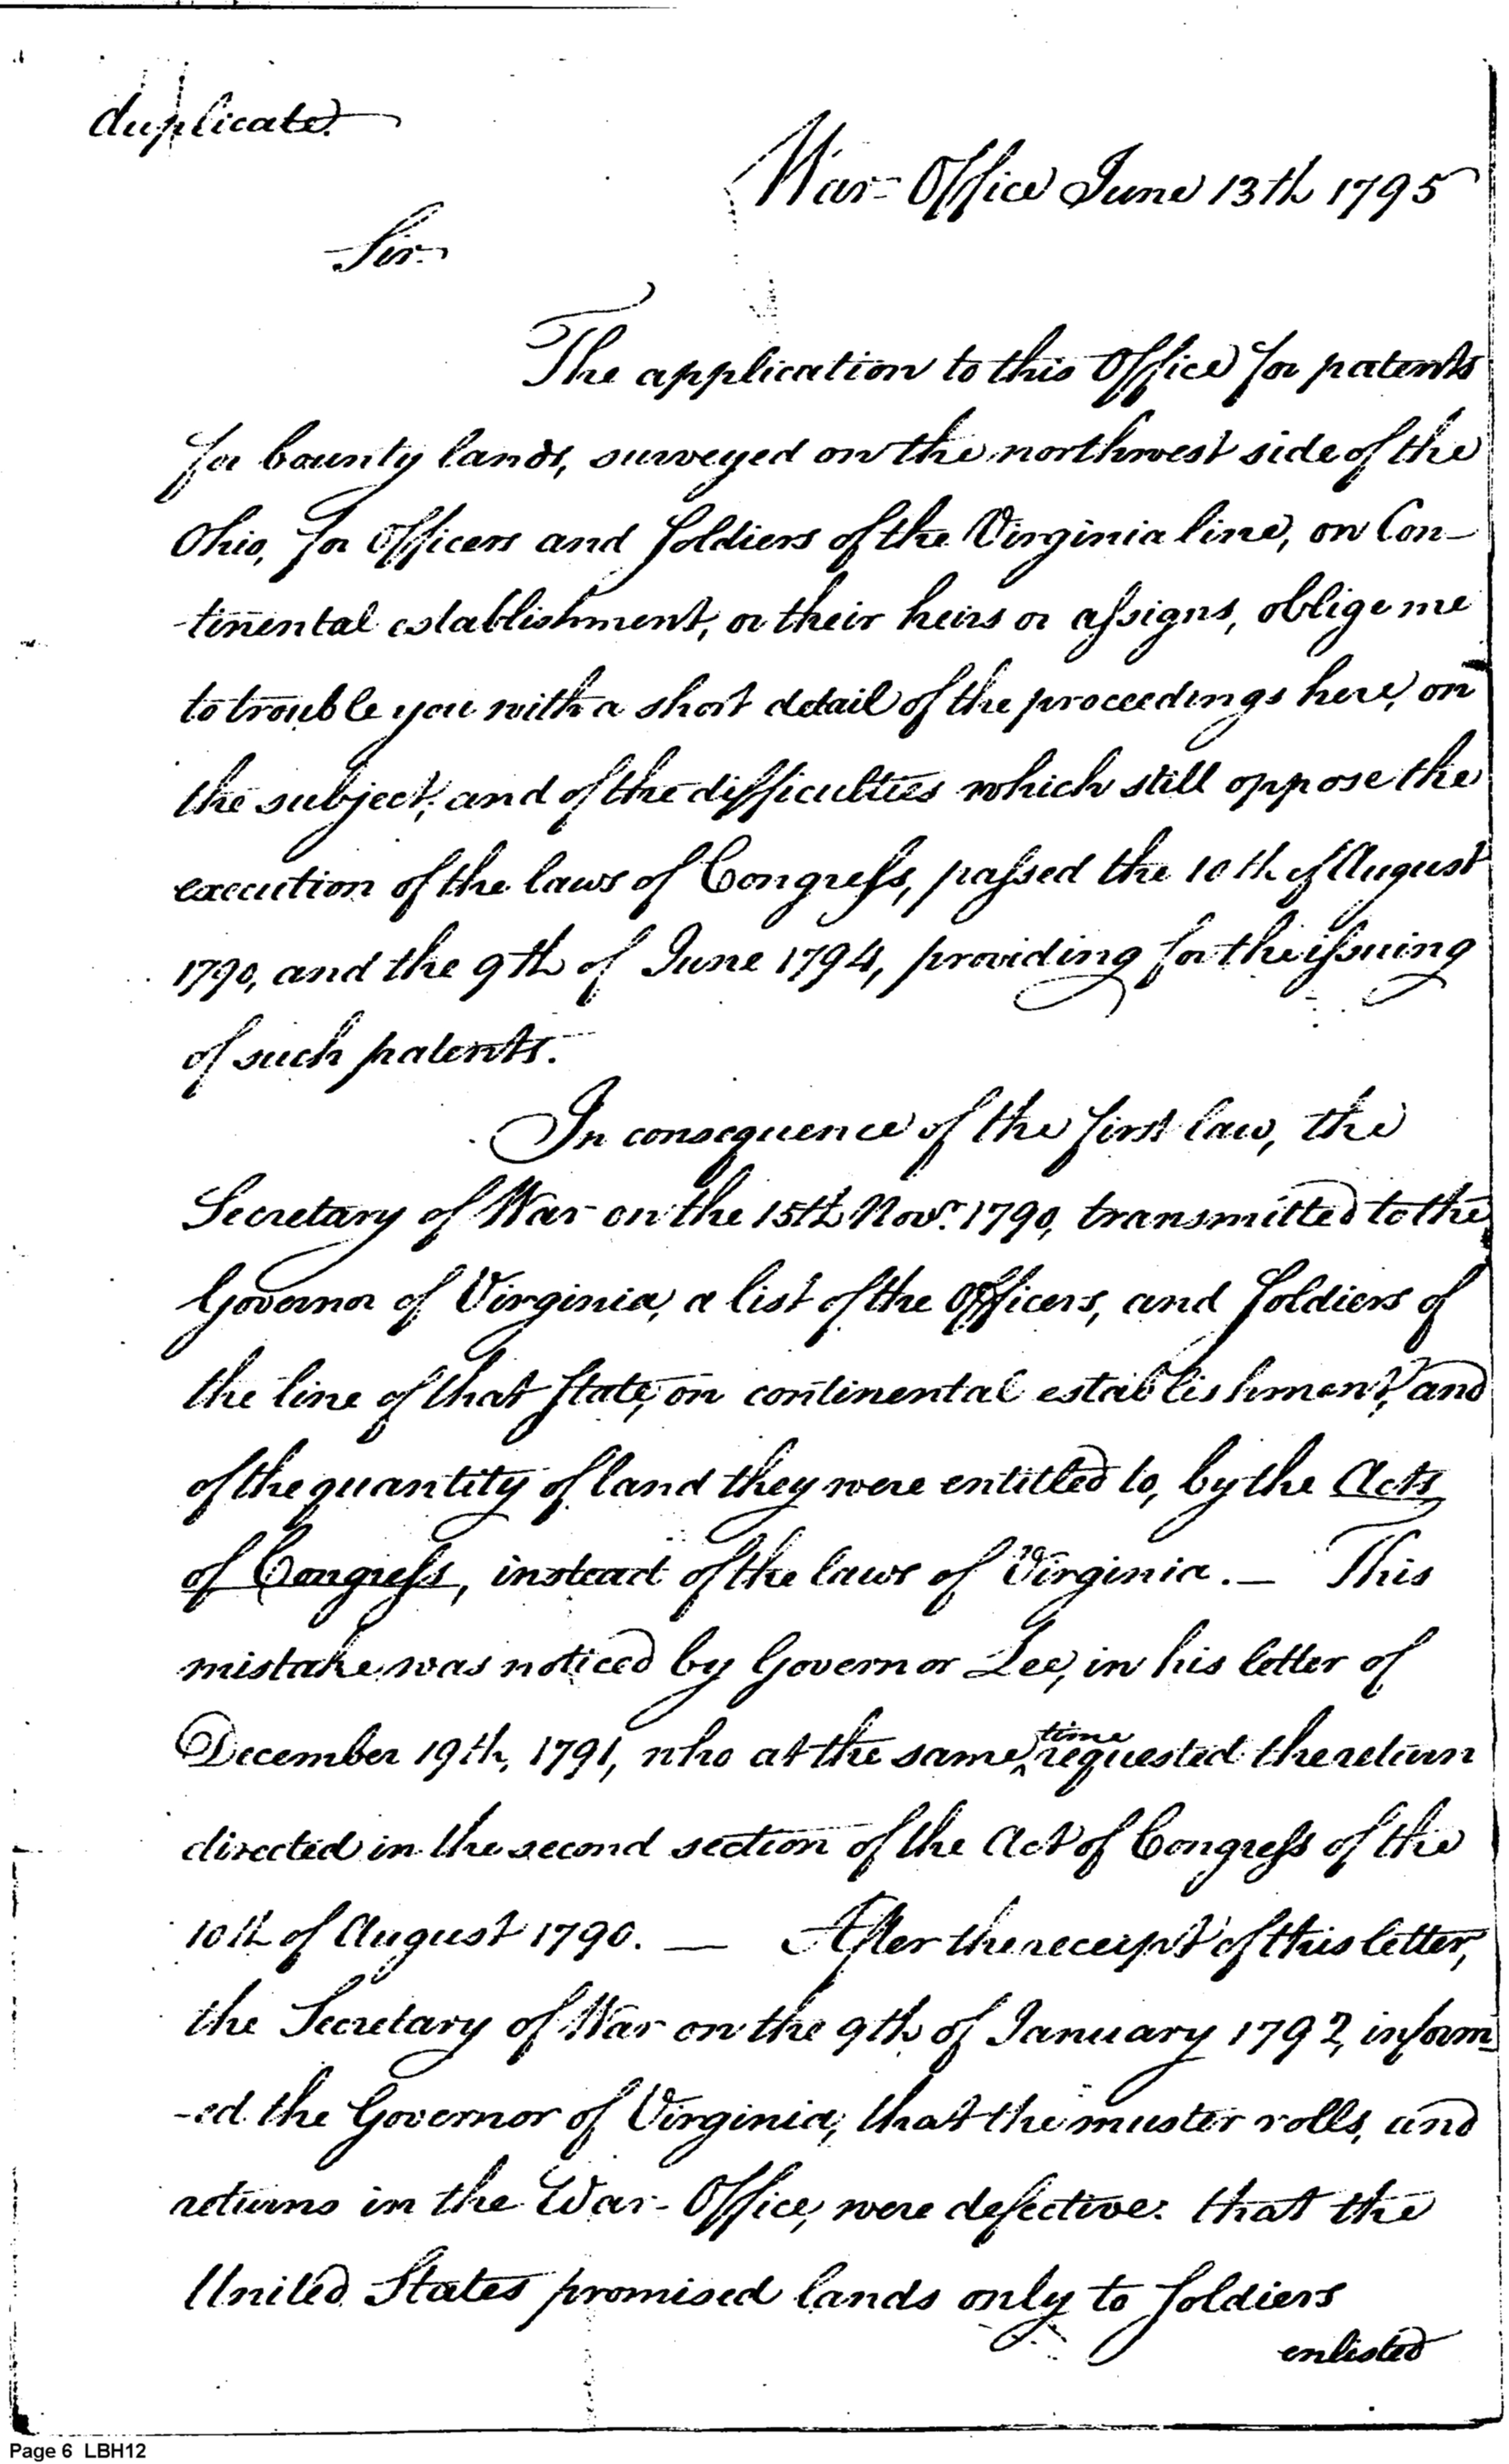 duplicate.
War-Office June 13th 1795
Sir
The application to this Office for patents
for bounty lands, surveyed on the northwest side of the
Ohio, for Officers and Soldiers of the Virginia line, on Con-
-tinental establishment, or their heirs or assigns, oblige me
to trouble you with a short detail of the proceedings here, on
the subject, and of the difficulties which still oppose the
execution of the laws of Congress, passed the 10th of August
1790, and the 9th of June 1794, providing for the issuing
of such patents.
In consequence of the first law, the
Secretary of War on the 15th Novr. 1790, transmitted to the
Governor of Virginia, a list of the Officers, and Soldiers of
the line of that State, on continental establishment, and
of the quantity of land they were entitled to, by the Acts
of Congress, instead of the laws of Virginia. — This
mistake was noticed by Governor Lee, in his letter of
December 19th, 1791, who at the same time requested the return
directed in the second section of the Act of Congress of the
10th of August 1790. — After the receipt of this letter,
the Secretary of War on the 9th of January 1792, inform-
-ed the Governor of Virginia, that the muster rolls, and
returns in the War-Office, were defective: that the
United States promised lands only to Soldiers
enlisted
Page 6 LBH12